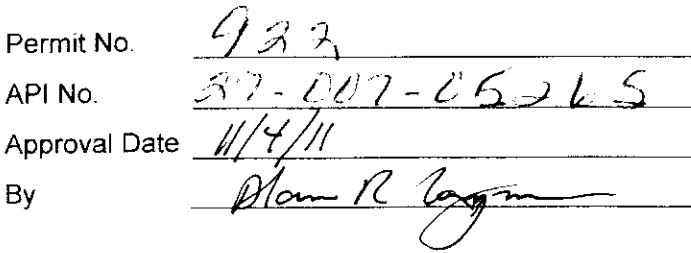 Permit No. 922
API No. 27-007-05265
Approval Date 11/4/11
By